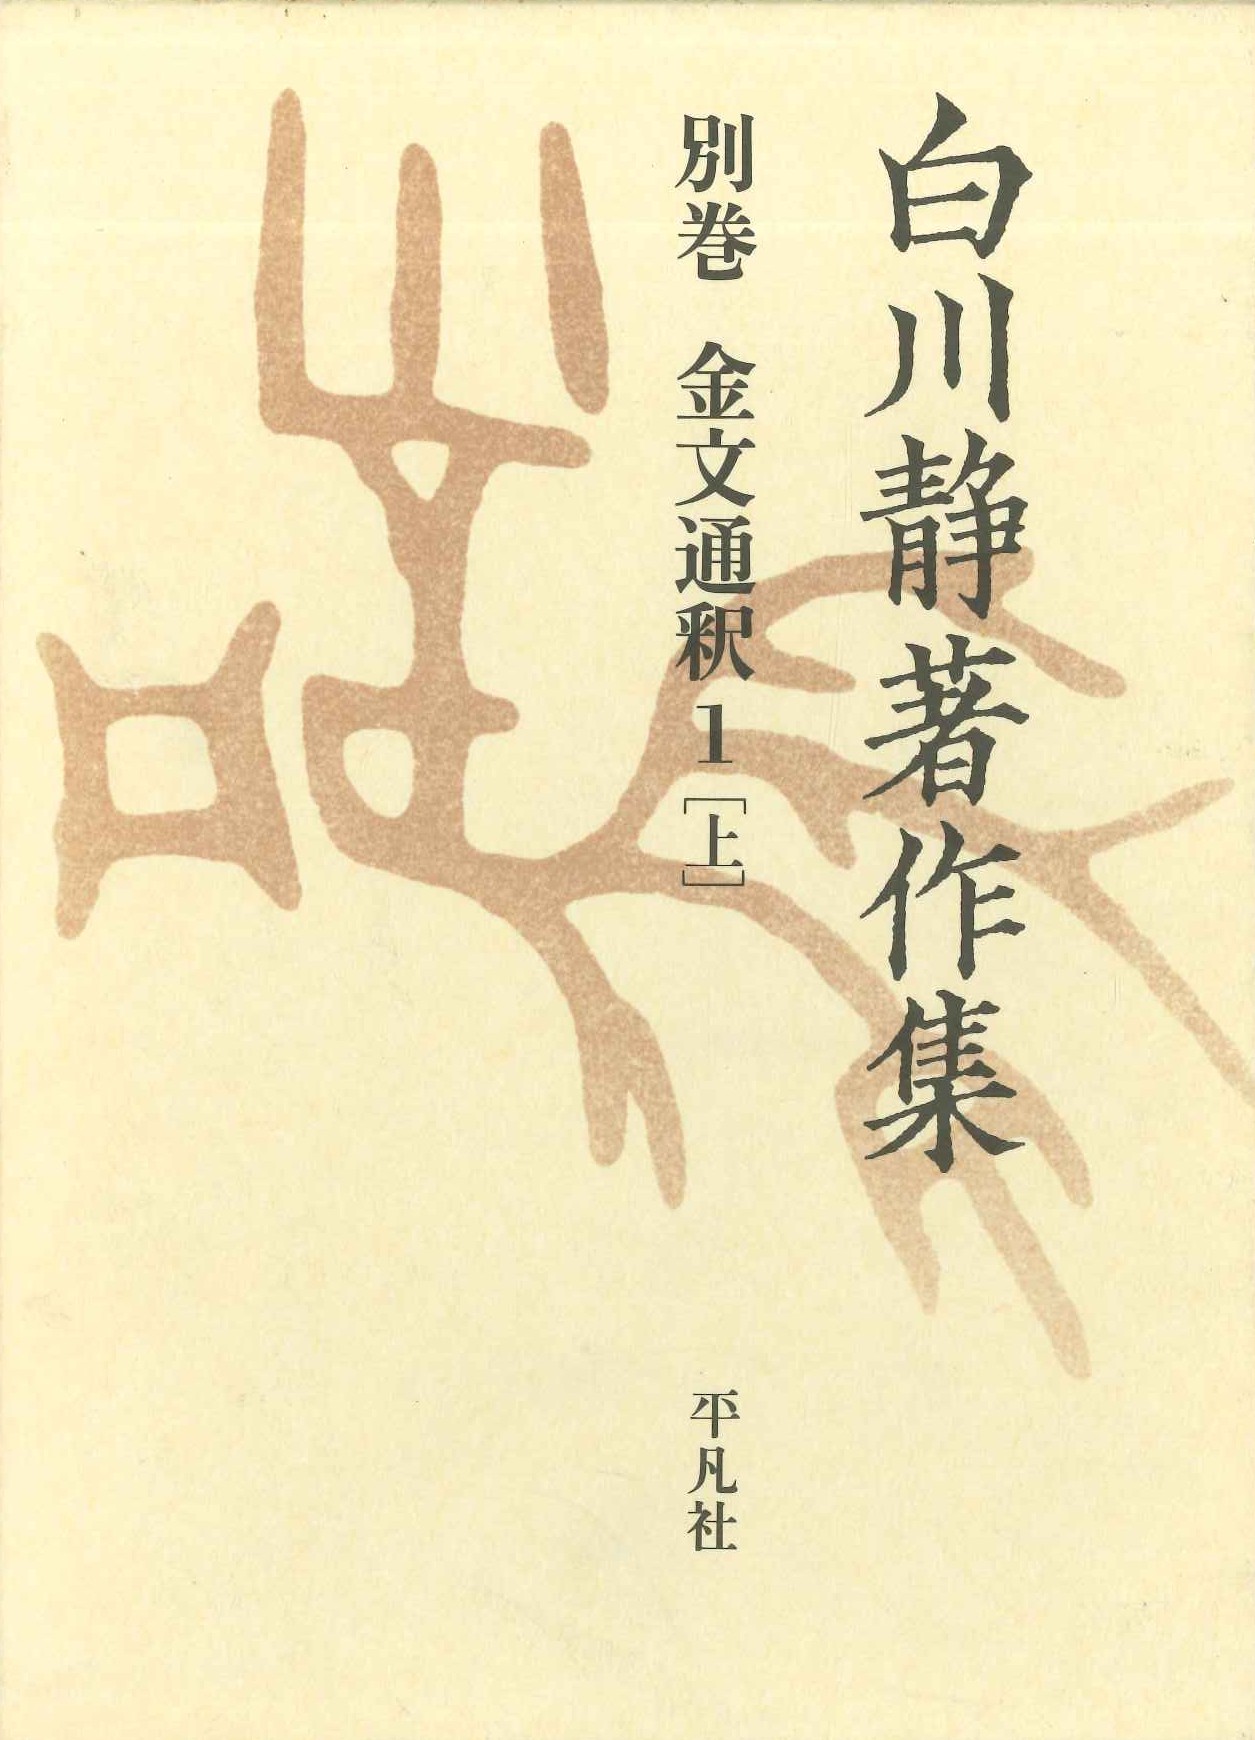 白川静著作集
別巻 金文通釈1[上]
平凡社